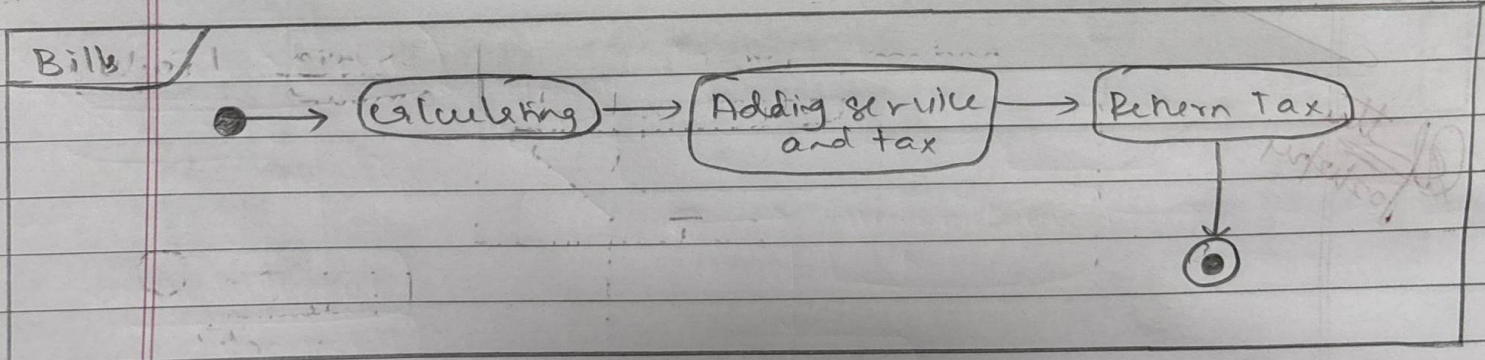 Bills
Calculating
Adding service
and tax
Return Tax